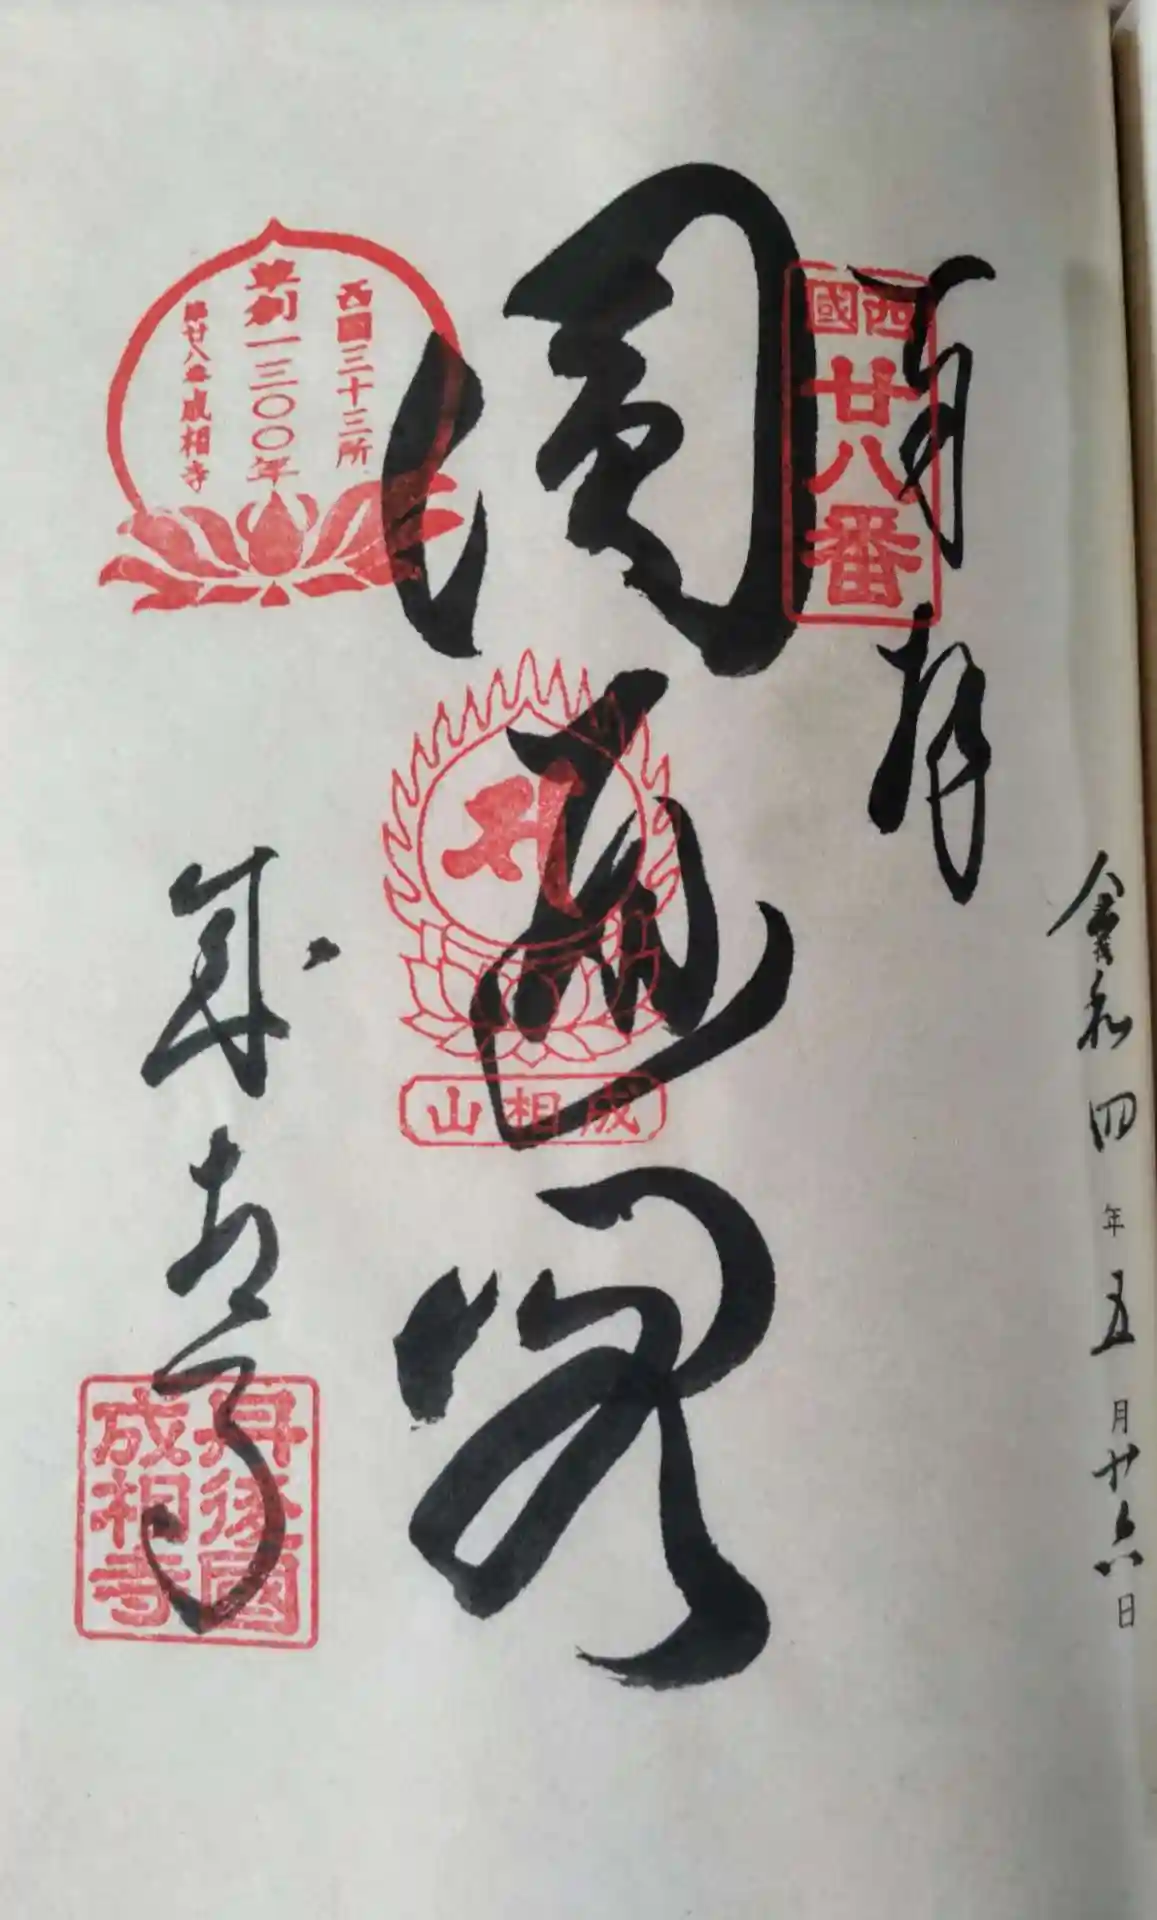 令和四年五月廿六日
奉拝
西國
廿八番
圓通閣
成相山
西國三十三所
草創一三〇〇年
第廿八番成相寺
成相寺
丹後國
成相寺